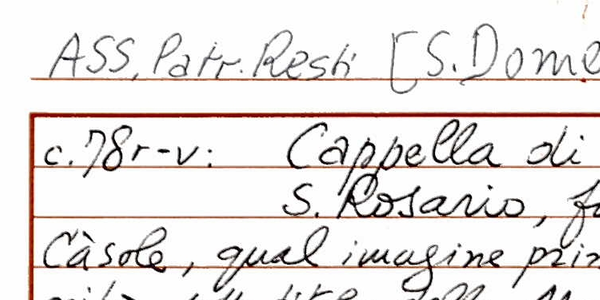 ASS, Patr. Resti [S. Dome
c. 78r-v: Cappella di
S. Rosario, fo
Càsole, qual imagine prin